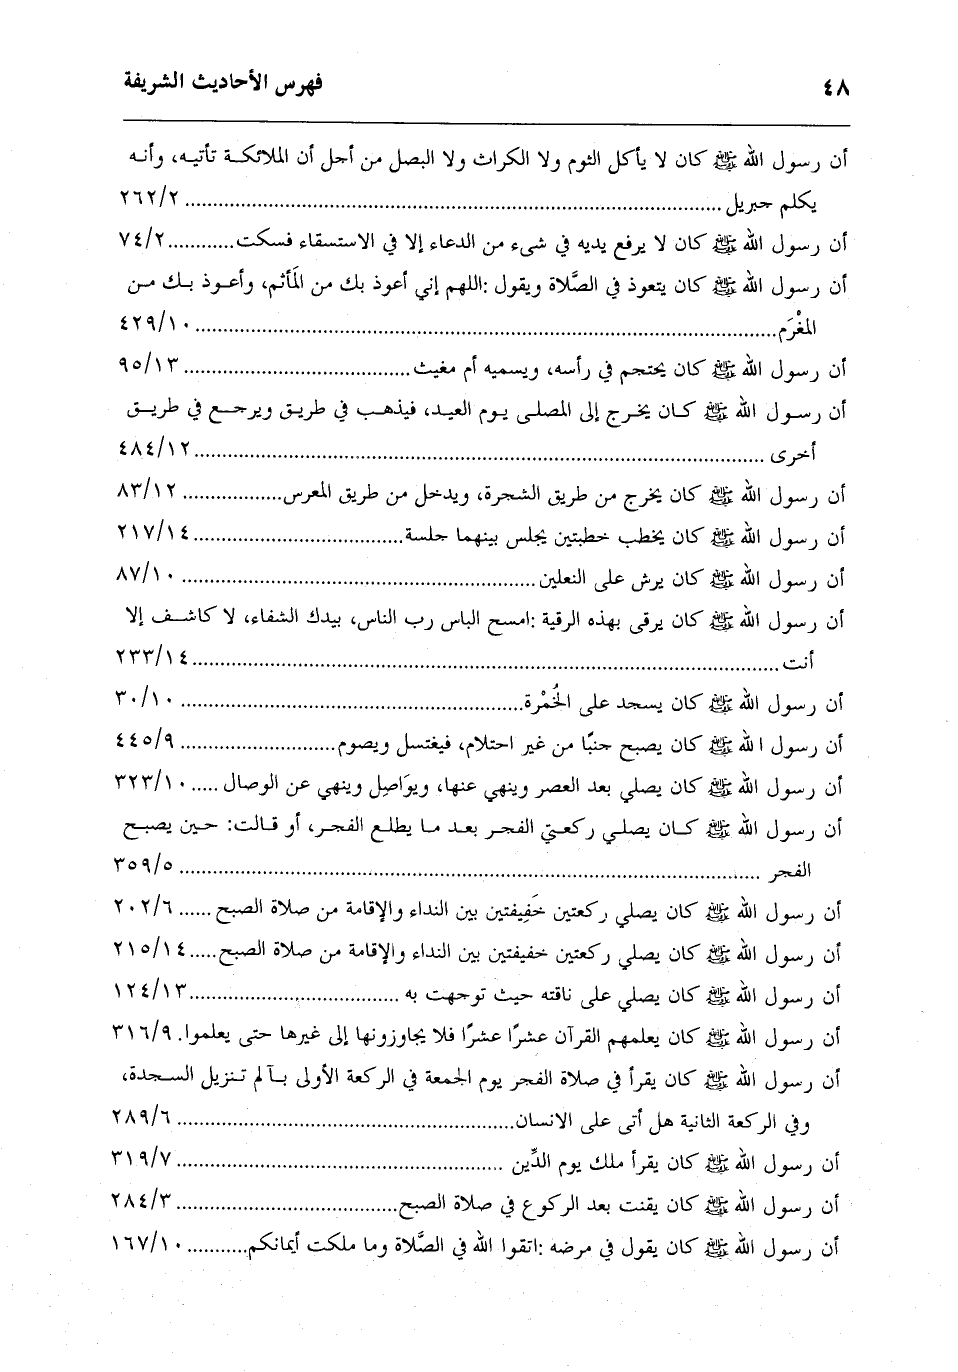 ٤٨ فهرس الأحاديث الشريفة
أن رسول الله ﷺ كان لا يأكل الثوم ولا الكراث ولا البصل من أجل أن الملائكة تأتيه، وأنه
يكلم جبريل ........ ٢٦٢/٢
أن رسول الله ﷺ كان لا يرفع يديه في شيء من الدعاء إلا في الاستسقاء فسكت ........ ٧٤/٢
أن رسول الله ﷺ كان يتعوذ في الصَّلاة ويقول :اللهم إني أعوذ بك من المَأثم، وأعوذ بك من
المغْرَم ........ ٤٢٩/١٠
أن رسول الله ﷺ كان يحتجم في رأسه، ويسميه أم مغيث ........ ٩٥/١٣
أن رسول الله ﷺ كان يخرج إلى المصلى يوم العيد، فيذهب في طريق ويرجع في طريق
أخرى ........ ٤٨٤/١٢
أن رسول الله ﷺ كان يخرج من طريق الشجرة، ويدخل من طريق المعرس ........ ٨٣/١٢
أن رسول الله ﷺ كان يخطب خطبتين يجلس بينهما جلسة ........ ٢١٧/١٤
أن رسول الله ﷺ كان يرش على النعلين ........ ٨٧/١٠
أن رسول الله ﷺ كان يرقى بهذه الرقية :امسح الباس رب الناس، بيدك الشفاء، لا كاشف إلا
أنت ........ ٢٣٣/١٤
أن رسول الله ﷺ كان يسجد على الخُمْرة ........ ٣٠/١٠
أن رسول ا لله ﷺ كان يصبح جنبًا من غير احتلام، فيغتسل ويصوم ........ ٤٤٥/٩
أن رسول الله ﷺ كان يصلي بعد العصر وينهي عنها، ويوَاصِل وينهي عن الوصال ..... ٣٢٣/١٠
أن رسول الله ﷺ كان يصلي ركعتي الفجر بعد ما يطلع الفجر، أو قالت: حين يصبح
الفجر ........ ٣٥٩/٥
أن رسول الله ﷺ كان يصلي ركعتين خَفِيفتين بين النداء والإقامة من صلاة الصبح ...... ٢٠٢/٦
أن رسول الله ﷺ كان يصلي ركعتين خفيفتين بين النداء والإقامة من صلاة الصبح ..... ٢١٥/١٤
أن رسول الله ﷺ كان يصلي على ناقته حيث توجهت به ........ ١٢٤/١٣
أن رسول الله ﷺ كان يعلمهم القرآن عشرًا عشرًا فلا يجاوزونها إلى غيرها حتى يعلموا. ٣١٦/٩
أن رسول الله ﷺ كان يقرأ في صلاة الفجر يوم الجمعة في الركعة الأولى بـآلم تنزيل السجدة،
وفي الركعة الثانية هل أتى على الانسان ........ ٢٨٩/٦
أن رسول الله ﷺ كان يقرأ ملك يوم الدِّين ........ ٣١٩/٧
أن رسول الله ﷺ كان يقنت بعد الركوع في صلاة الصبح ........ ٢٨٤/٣
أن رسول الله ﷺ كان يقول في مرضه :اتقوا الله في الصَّلاة وما ملكت أيمانكم ........ ١٦٧/١٠